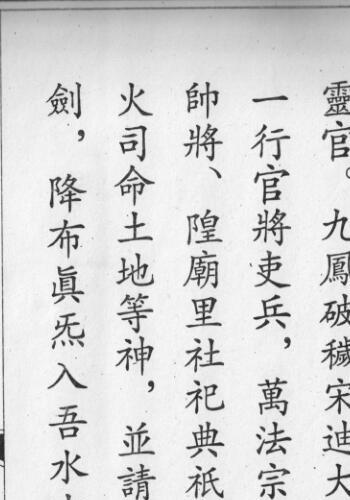 靈官。九鳳破穢宋迪大
一行官將吏兵，萬法宗
帥將、隍廟里社祀典祇
火司命土地等神，並請
劍，降布眞炁入吾水